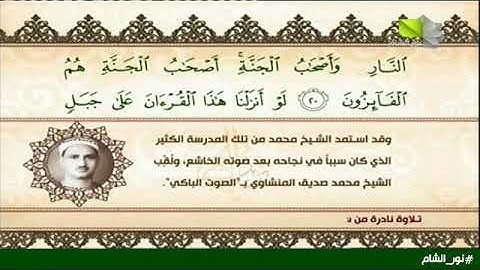 النَّارِ وَأَصْحَٰبُ الْجَنَّةِ ۚ أَصْحَٰبُ الْجَنَّةِ هُمُ
الْفَآئِزُونَ ۝٢٠ لَوْ أَنزَلْنَا هَٰذَا الْقُرْءَانَ عَلَىٰ جَبَلٍ
وقد استمد الشيخ محمد من تلك المدرسة الكثير
الذي كان سبباً في نجاحه بعد صوته الخاشع، ولُقب
الشيخ محمد صديق المنشاوي بـ"الصوت الباكي".
تلاوة نادرة من
#نور_الشام